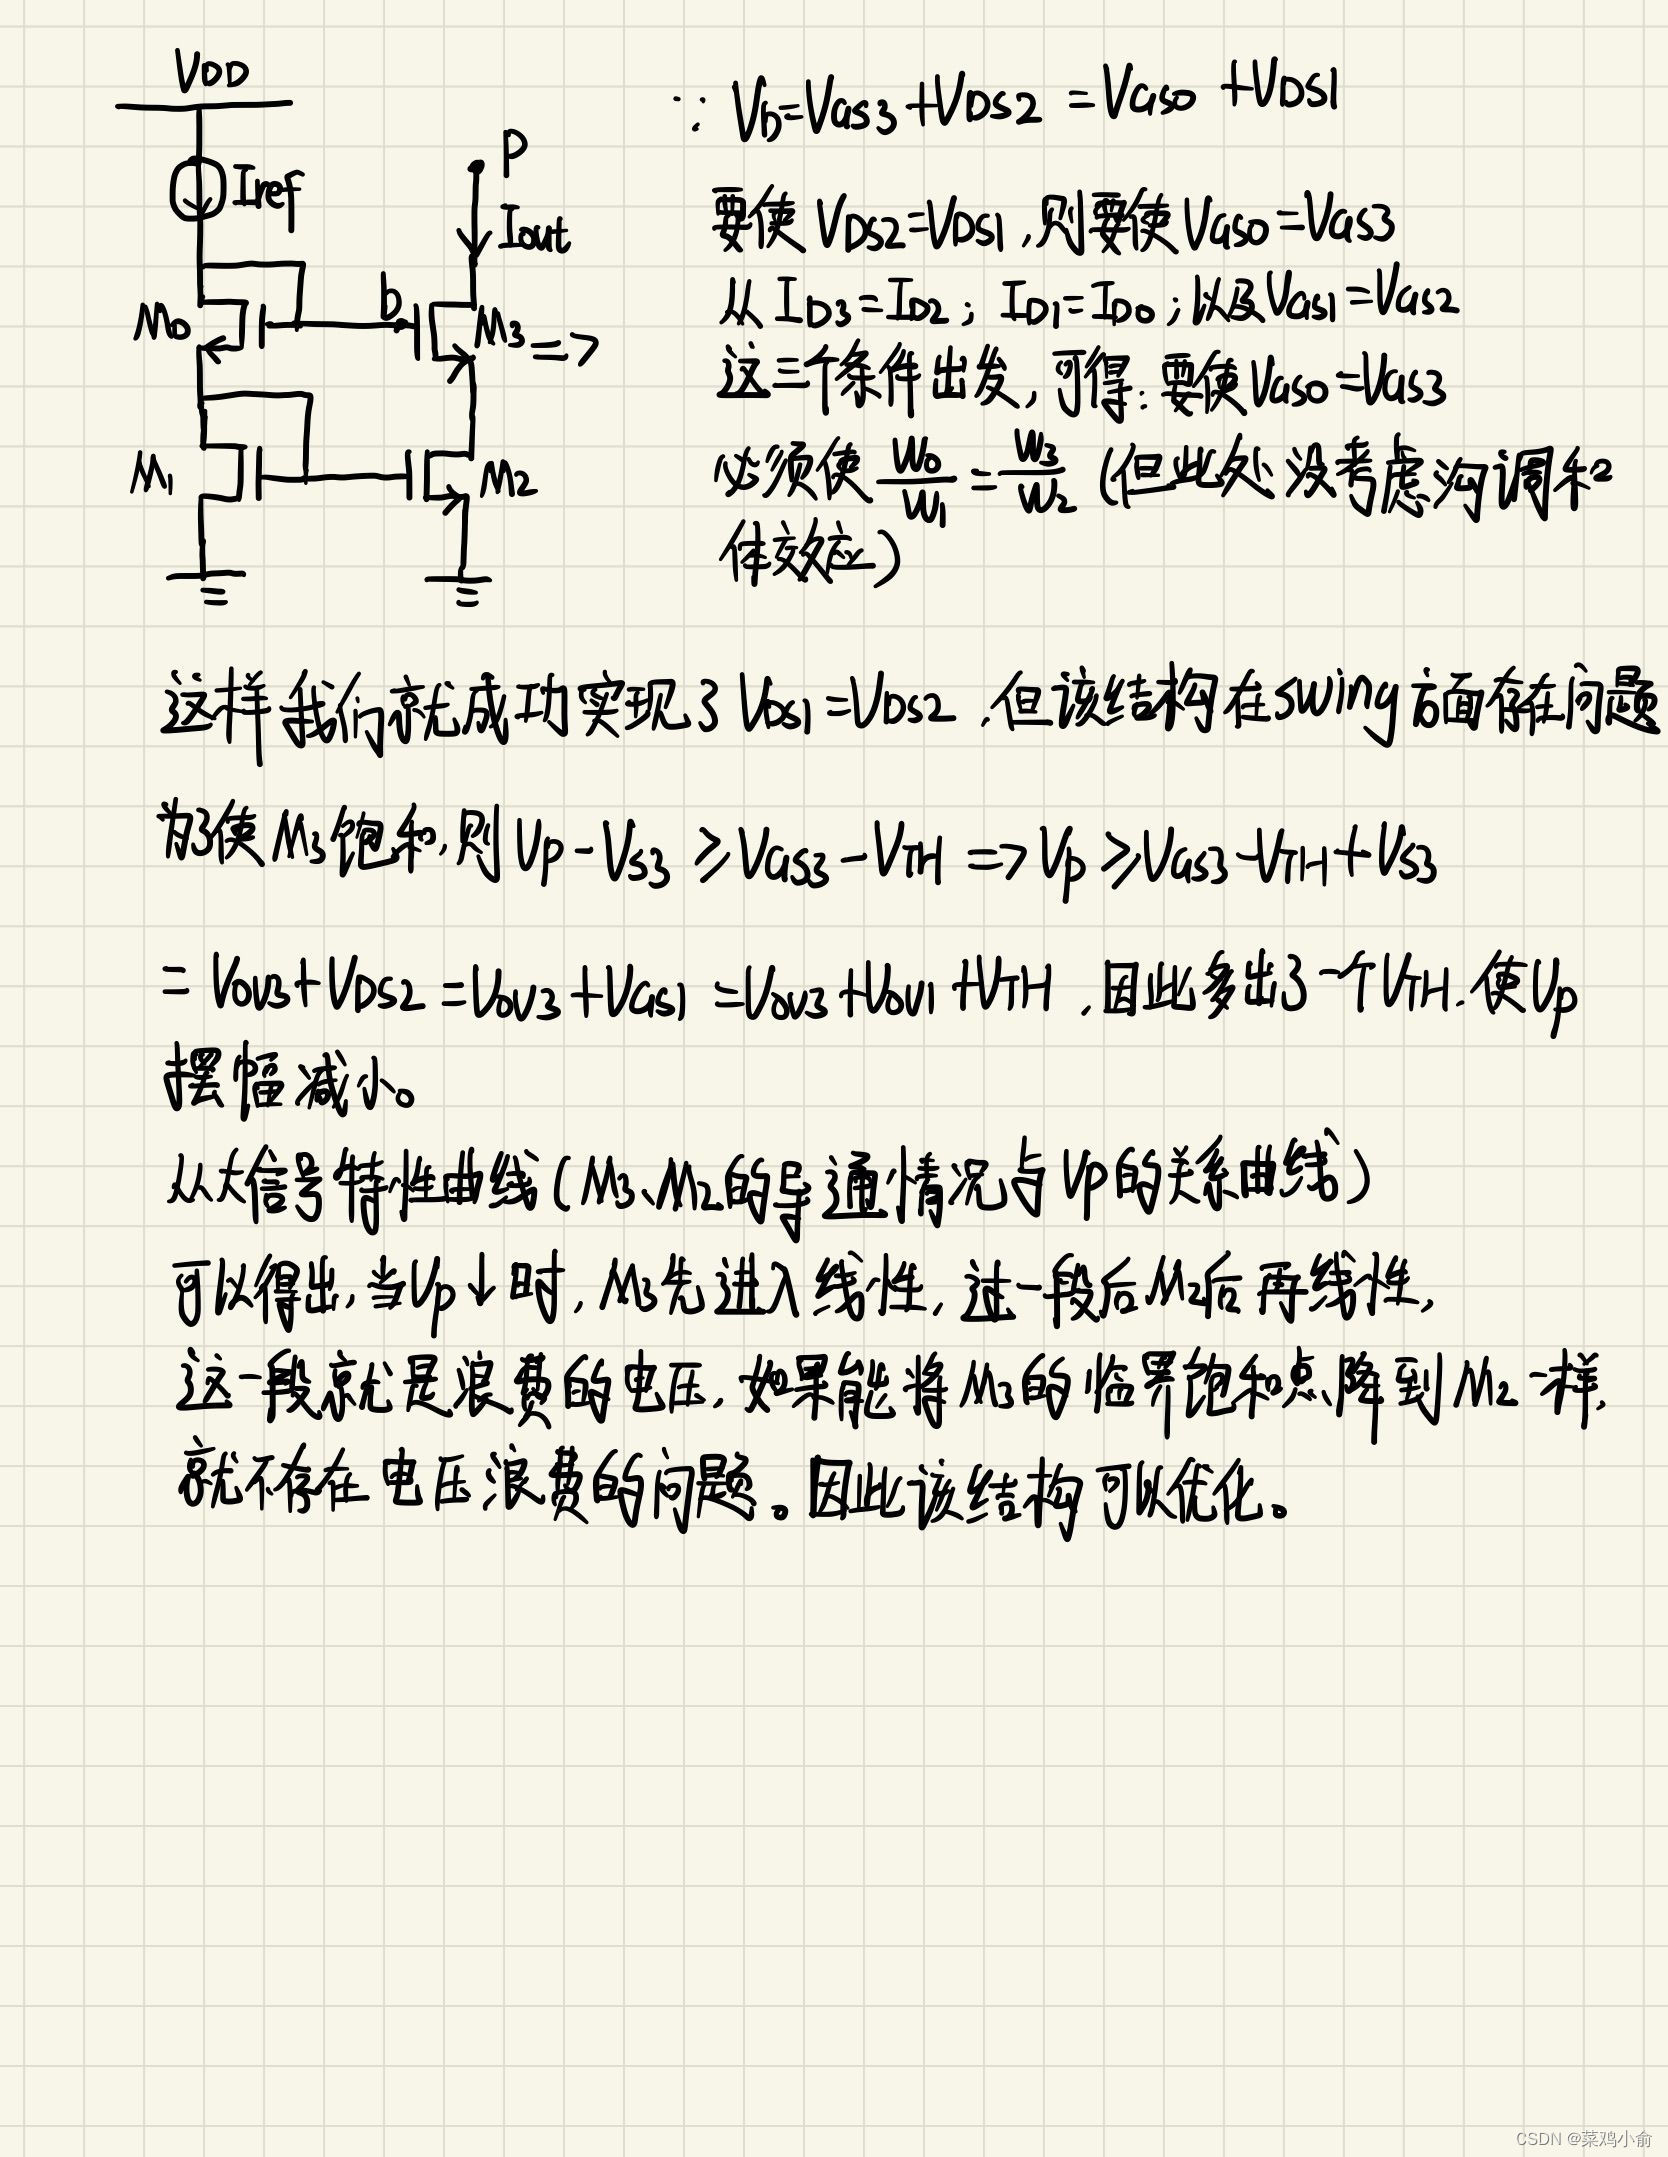 VDD
Iref
P
Iout
M0
b
M3 =>
M1
M2
∵ Vb=VGS3+VDS2 =VGS0 +VDS1
要使 VDS2=VDS1,则要使VGS0=VGS3
从 ID3=ID2; ID1=ID0;以及VGS1=VGS2
这三个条件出发,可得:要使VGS0=VGS3
必须使 W0/W1 = W3/W2 (但此处没考虑沟调和
体效应)
这样我们就成功实现了VDS1=VDS2,但该结构在swing方面存在问题
为了使M3饱和,则 Vp-VS3 ≥VGS3-VTH => Vp ≥VGS3-VTH+VS3
= VOV3+VDS2 =VOV3+VGS1 =VOV3+VOV1 +VTH ,因此多出了一个VTH.使Vp
摆幅减小。
从大信号特性曲线(M3、M2的导通情况与Vp的关系曲线)
可以得出,当Vp↓时,M3先进入线性,过一段后M2后再线性,
这一段就是浪费的电压,如果能将M3的临界饱和点降到M2一样,
就不存在电压浪费的问题。因此该结构可以优化。
CSDN @菜鸡小俞